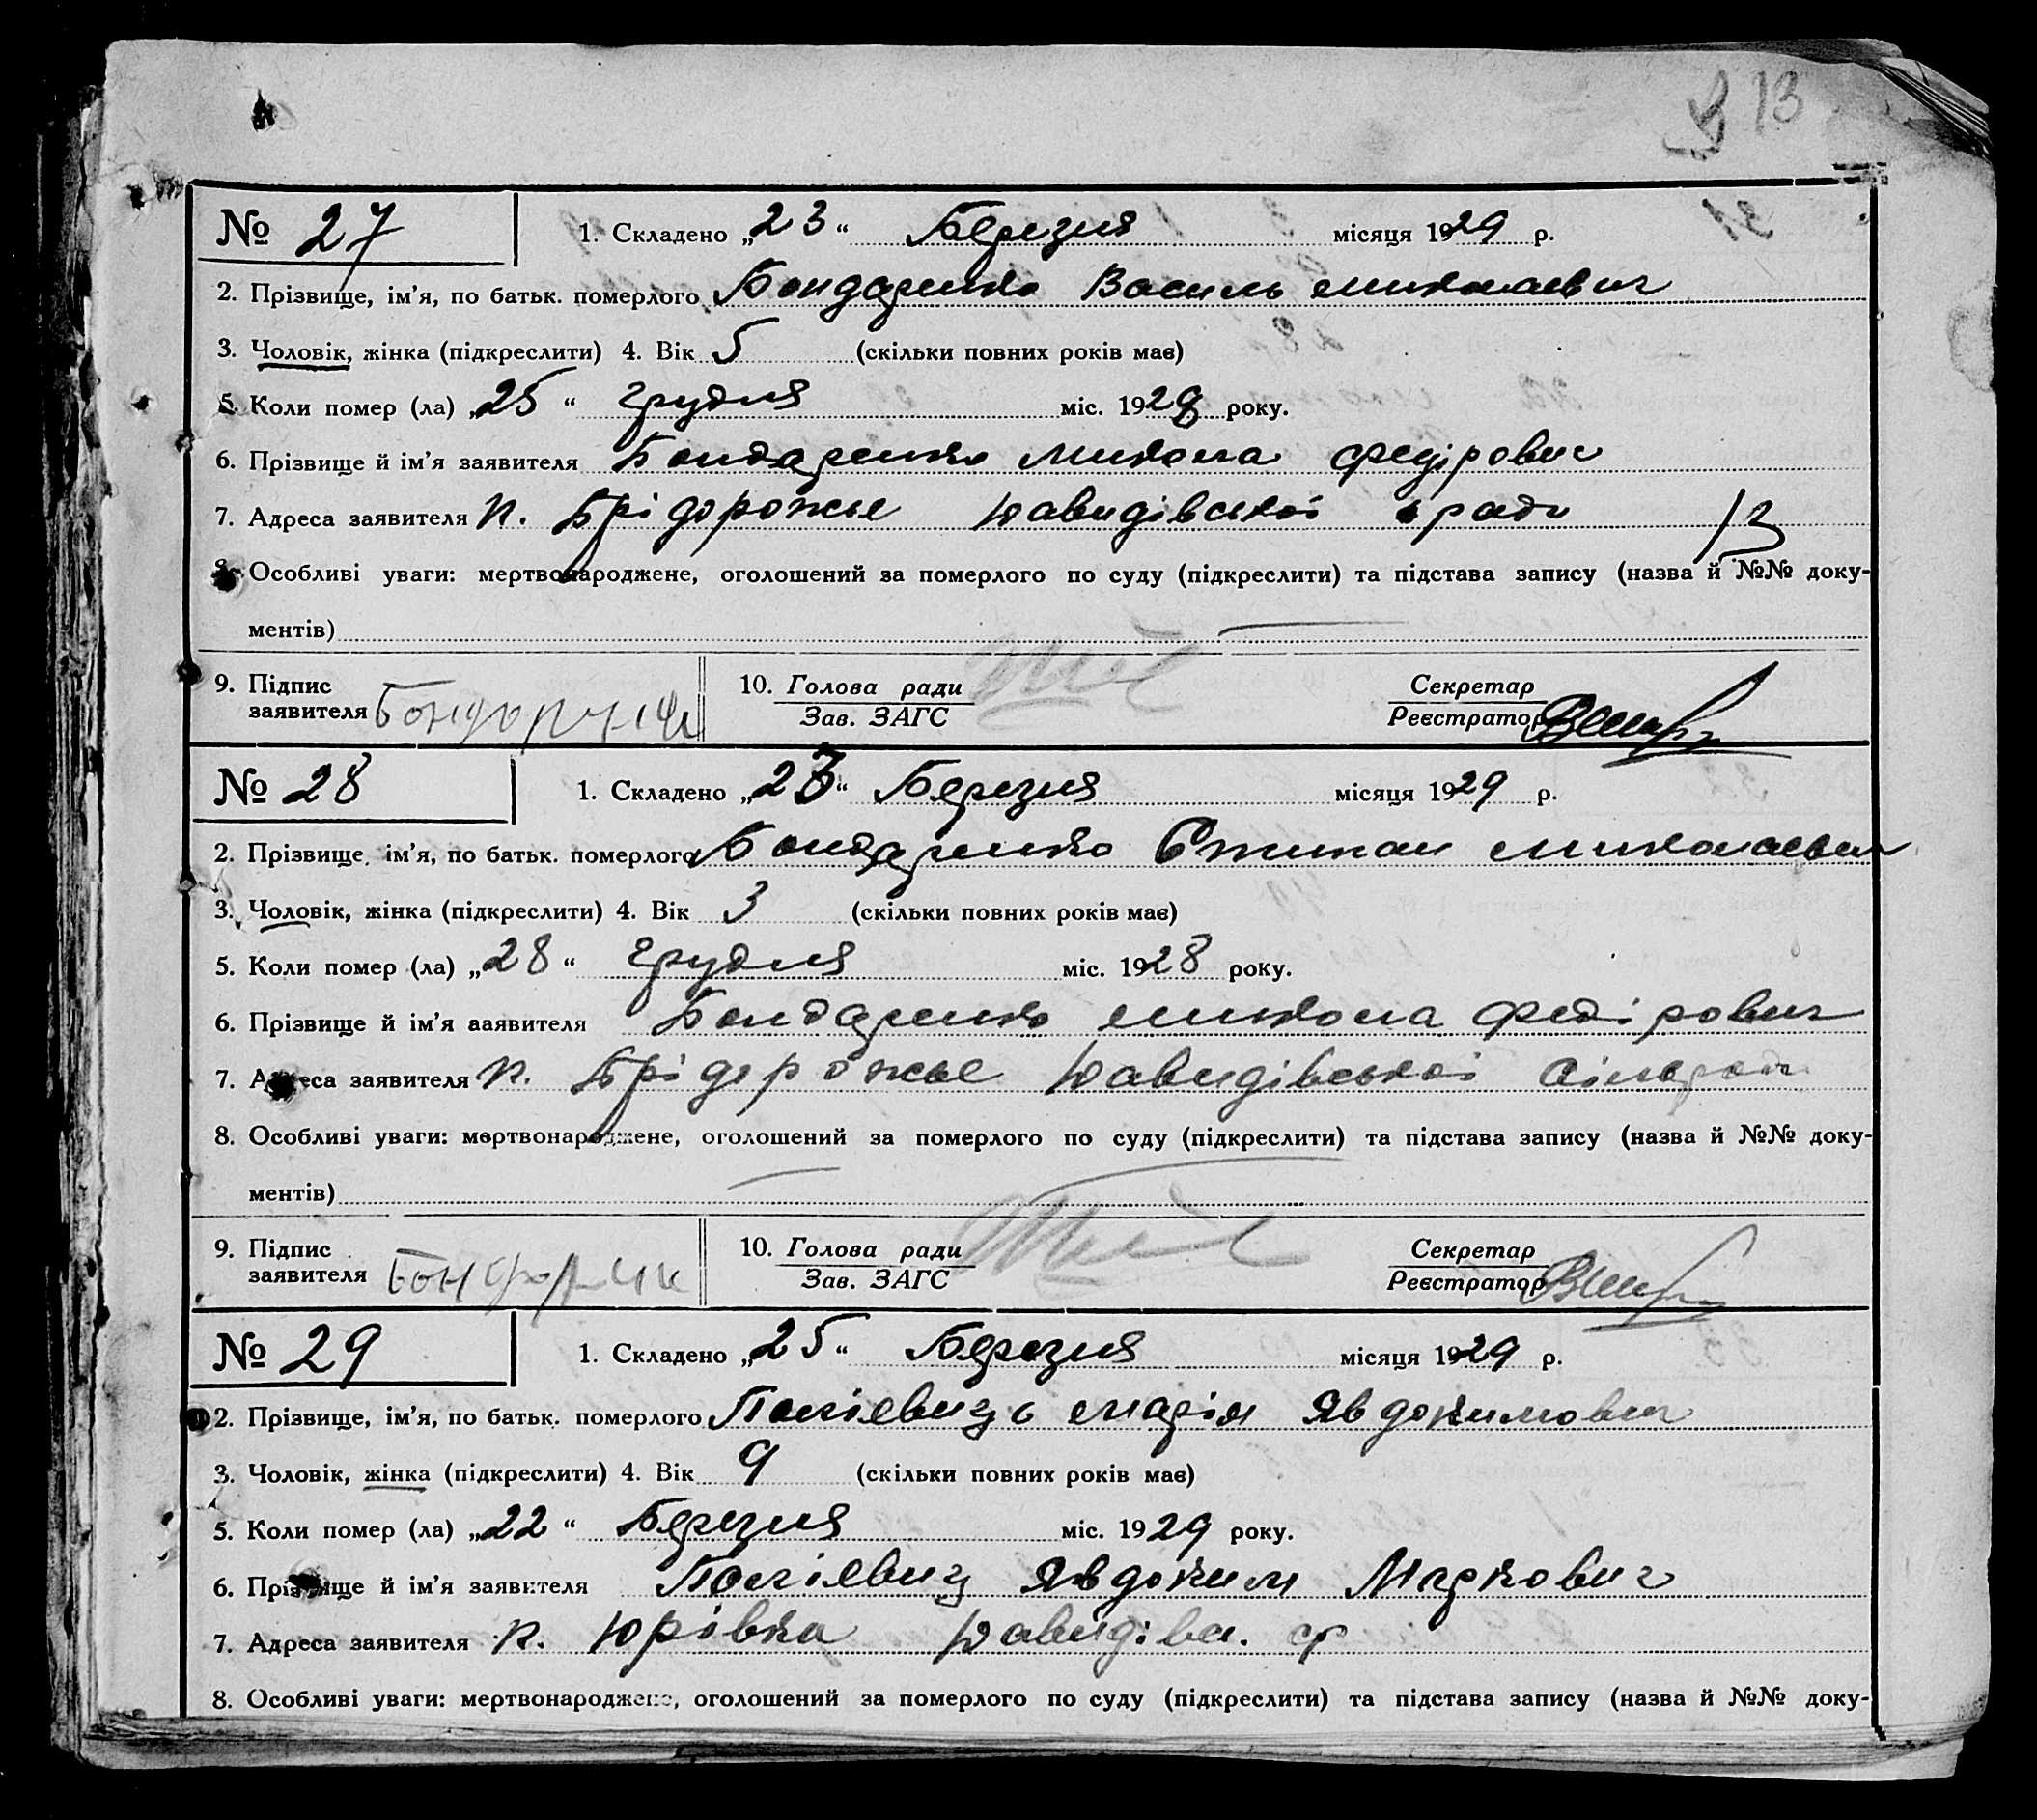 13
№ 27 1. Складено „23“ Березня місяця 1929 р.
2. Прізвище, ім’я, по батьк. померлого Бондаренко Василь Миколаєвич
3. Чоловік, жінка (підкреслити) 4. Вік 5 (скільки повних років має)
5. Коли помер (ла) „25“ грудня міс. 1928 року.
6. Прізвище й ім’я заявителя Бондаренко Микола Федірович
7. Адреса заявителя х. Прідорожье Давидівської с ради
13
8. Особливі уваги: мертвонароджене, оголошений за померлого по суду (підкреслити) та підстава запису (назва й №№ доку-
ментів)
9. Підпис 10. Голова ради Секретар
заявителя Зав. ЗАГС Реєстратор
№ 28 1. Складено „23“ Березня місяця 1929 р.
2. Прізвище, ім’я, по батьк. померлого Бондаренко Степан Миколаєвич
3. Чоловік, жінка (підкреслити) 4. Вік 3 (скільки повних років має)
5. Коли помер (ла) „28“ грудня міс. 1928 року.
6. Прізвище й ім’я заявителя Бондаренко Микола Федірович
7. Адреса заявителя х. Прідорожье Давидівської сільради
8. Особливі уваги: мертвонароджене, оголошений за померлого по суду (підкреслити) та підстава запису (назва й №№ доку-
ментів)
9. Підпис 10. Голова ради Секретар
заявителя Зав. ЗАГС Реєстратор
№ 29 1. Складено „25“ Березня місяця 1929 р.
2. Прізвище, ім’я, по батьк. померлого Марія Явдокимович
3. Чоловік, жінка (підкреслити) 4. Вік 9 (скільки повних років має)
5. Коли помер (ла) „22“ Березня міс. 1929 року.
6. Прізвище й ім’я заявителя Явдоким Маркович
7. Адреса заявителя х. Юрівка Давидівс. ср
8. Особливі уваги: мертвонароджене, оголошений за померлого по суду (підкреслити) та підстава запису (назва й №№ доку-